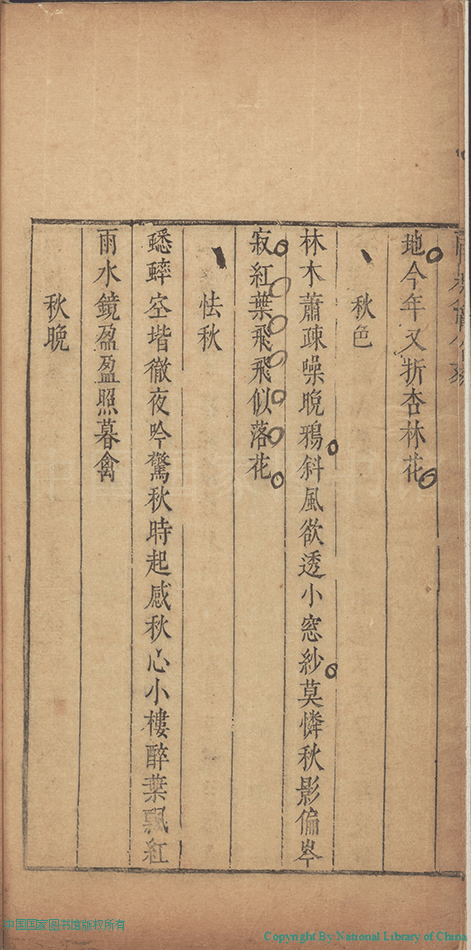 地今年又折杏林花
秋色
林木蕭疎噪晚鴉斜風欲透小窓紗莫憐秋影偏岑
寂紅葉飛飛似落花
怯秋
蟋蟀空堦徹夜吟驚秋時起感秋心小樓醉葉飄紅
雨水鏡盈盈照暮禽
秋晚
中国国家图书馆版权所有
Copyright By National Library of China